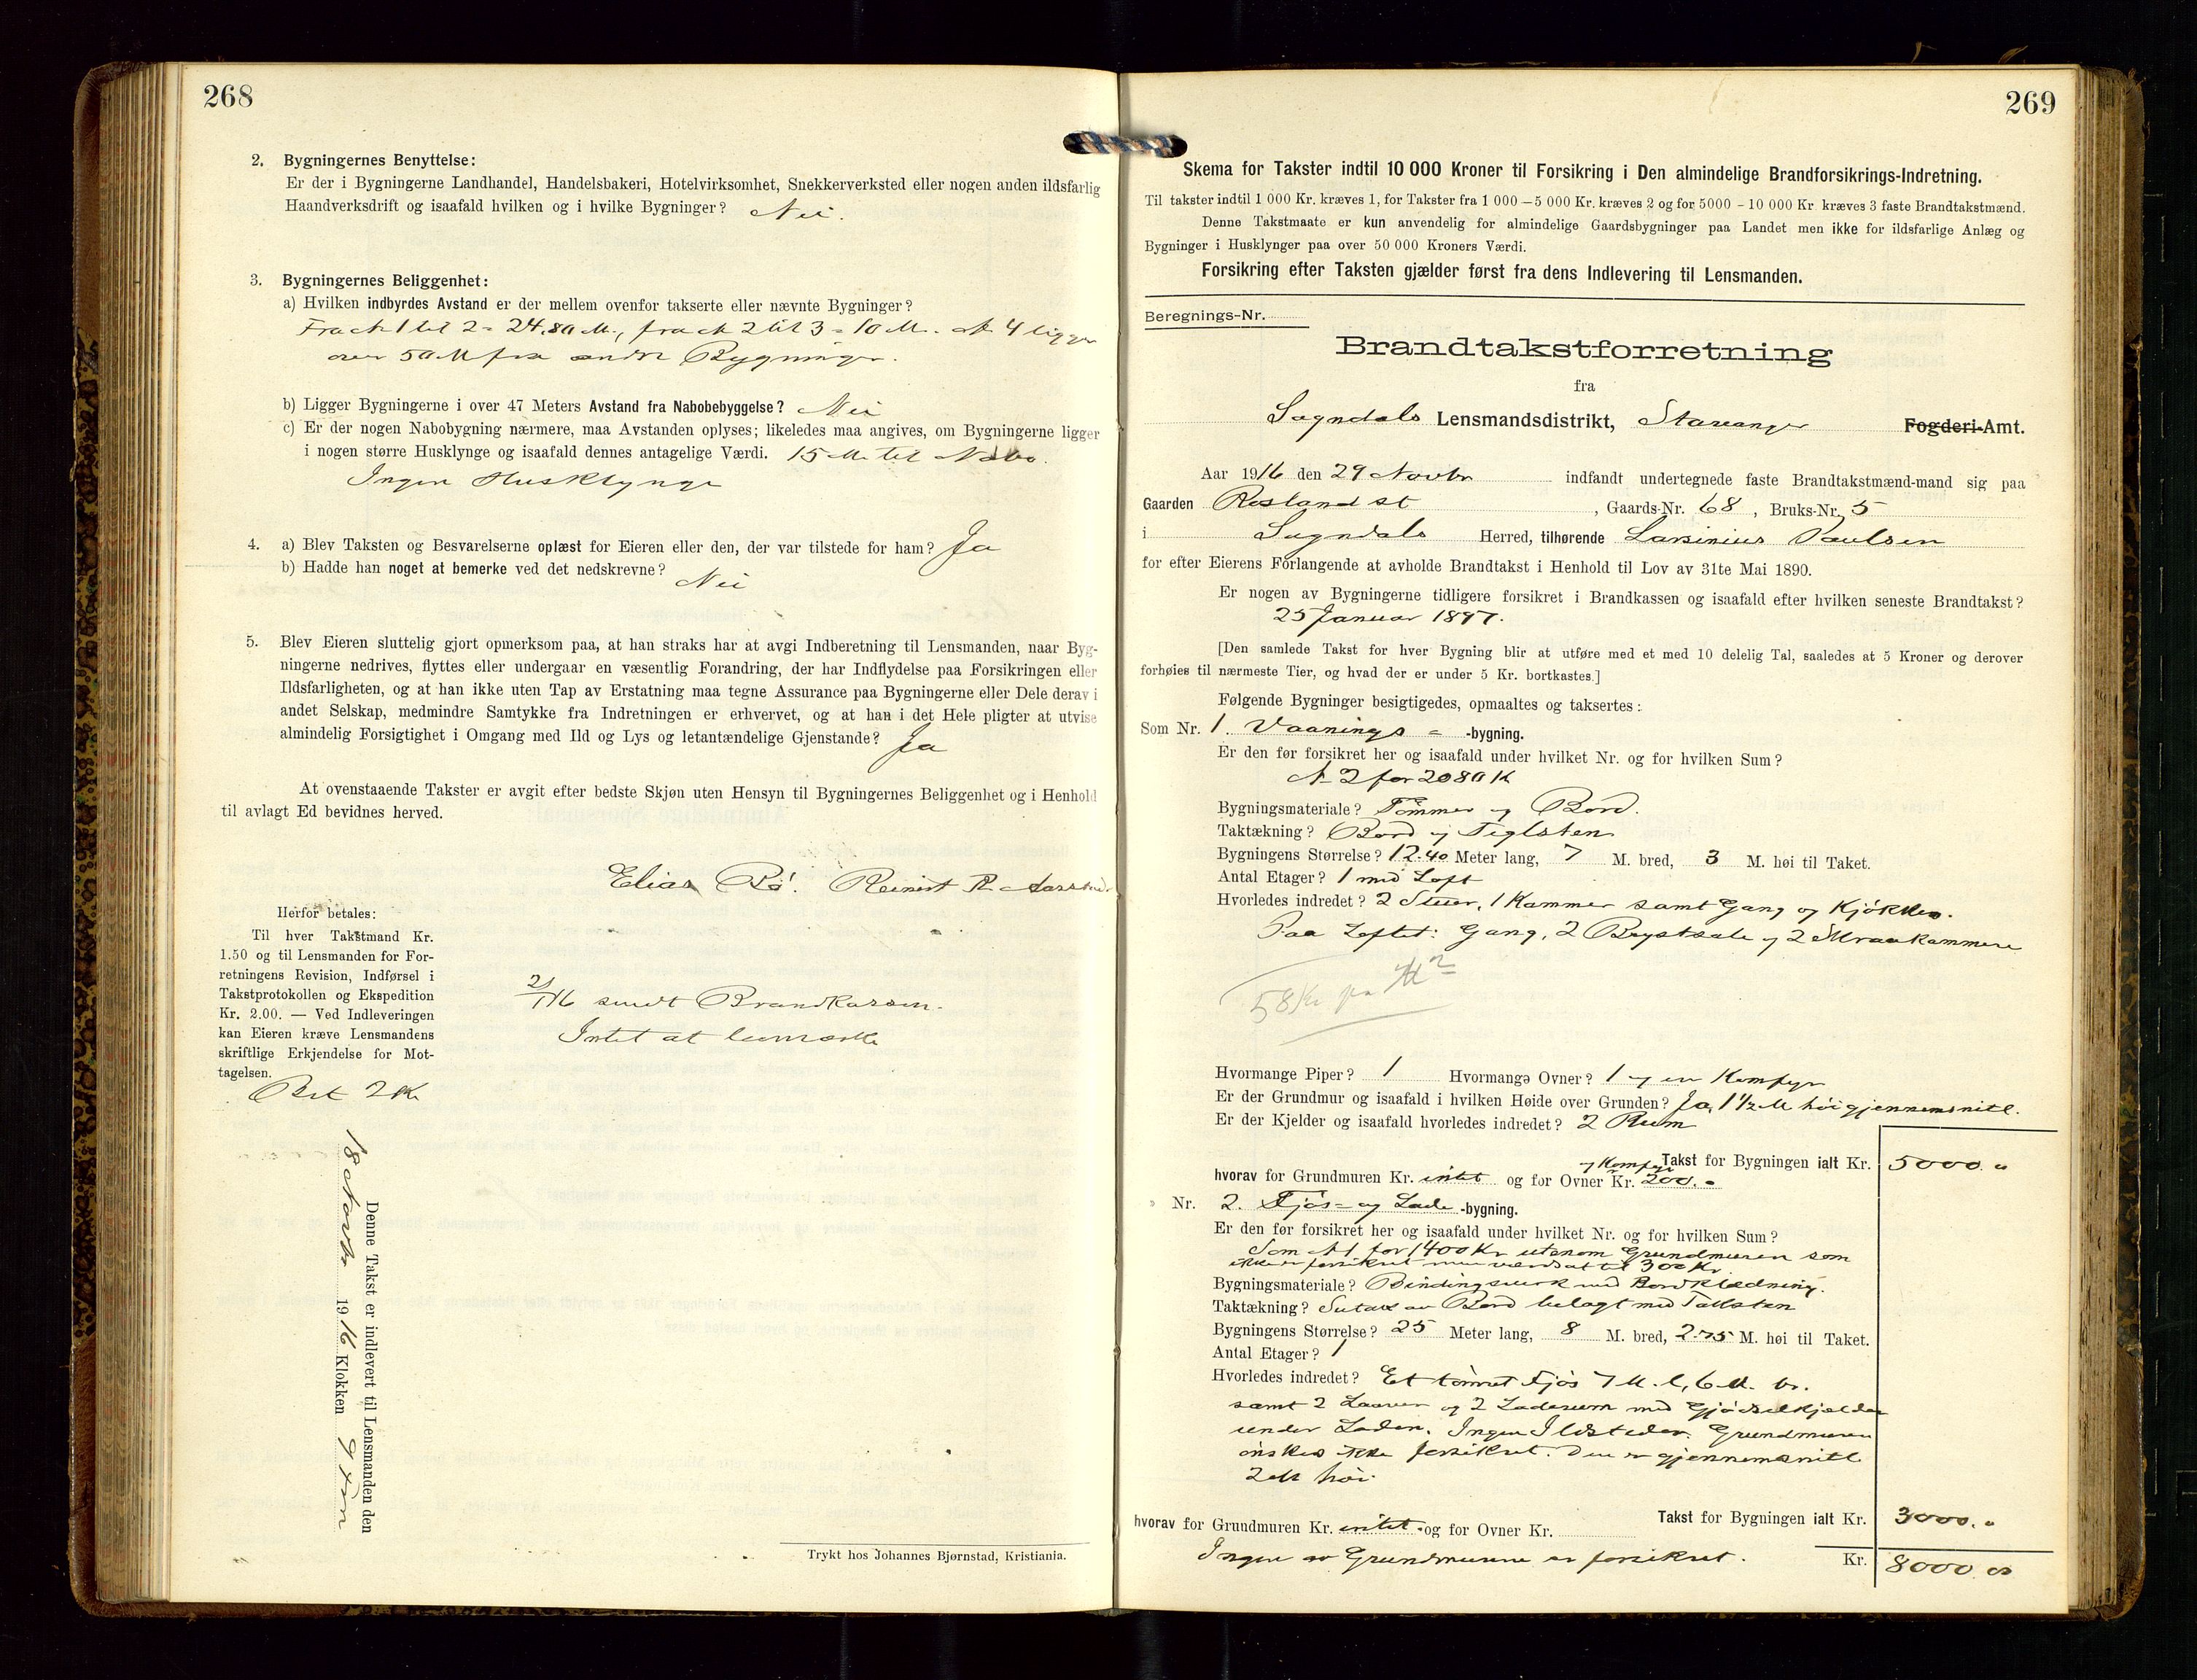 268
2. Bygningernes Benyttelse:
Er der i Bygningerne Landhandel, Handelsbakeri, Hotelvirksomhet, Snekkerverksted eller nogen anden ildsfarlig
Haandverksdrift og isaafald hvilken og i hvilke Bygninger? Nei.
3. Bygningernes Beliggenhet:
a) Hvilken indbyrdes Avstand er der mellem ovenfor takserte eller nævnte Bygninger?
Fra № 1 til 2 = 24.80 M., fra № 2 til 3 = 10 M. № 4 ligger
over 50 M fra andre Bygninger.
b) Ligger Bygningerne i over 47 Meters Avstand fra Nabobebyggelse? Nei
c) Er der nogen Nabobygning nærmere, maa Avstanden oplyses; likeledes maa angives, om Bygningerne ligger
i nogen større Husklynge og isaafald dennes antagelige Værdi. 15 M. til Nabo.
Ingen Husklynge
4. a) Blev Taksten og Besvarelserne oplæst for Eieren eller den, der var tilstede for ham? Ja
b) Hadde han noget at bemerke ved det nedskrevne? Nei
5. Blev Eieren sluttelig gjort opmerksom paa, at han straks har at avgi Indberetning til Lensmanden, naar Byg-
ningerne nedrives, flyttes eller undergaar en væsentlig Forandring, der har Indflydelse paa Forsikringen eller
Ildsfarligheten, og at han ikke uten Tap av Erstatning maa tegne Assurance paa Bygningerne eller Dele derav i
andet Selskap, medmindre Samtykke fra Indretningen er erhvervet, og at han i det Hele pligter at utvise
almindelig Forsigtighet i Omgang med Ild og Lys og letantændelige Gjenstande? Ja
At ovenstaaende Takster er avgit efter bedste Skjøn uten Hensyn til Bygningernes Beliggenhet og i Henhold
til avlagt Ed bevidnes herved.
Elias Rö. Reinert R.
Herfor betales:
Til hver Takstmand Kr.
1.50 og til Lensmanden for For-
retningens Revision, Indførsel i
Takstprotokollen og Ekspedition
Kr. 2.00. — Ved Indleveringen
kan Eieren kræve Lensmandens
skriftlige Erkjendelse for Mot-
tagelsen.
Bet 2 Kr
sendt Brandkassen.
Intet at bemærke
Denne Takst er indlevert til Lensmanden den
18 Novbr 1916 Klokken 9 Fm
Trykt hos Johannes Bjørnstad, Kristiania.
269
Skema for Takster indtil 10 000 Kroner til Forsikring i Den almindelige Brandforsikrings-Indretning.
Til takster indtil 1 000 Kr. kræves 1, for Takster fra 1 000 – 5 000 Kr. kræves 2 og for 5000 – 10 000 Kr. kræves 3 faste Brandtakstmænd.
Denne Takstmaate er kun anvendelig for almindelige Gaardsbygninger paa Landet men ikke for ildsfarlige Anlæg og
Bygninger i Husklynger paa over 50 000 Kroners Værdi.
Forsikring efter Taksten gjælder først fra dens Indlevering til Lensmanden.
Beregnings-Nr.
Brandtakstforretning
fra
Sogndals Lensmandsdistrikt, Stavanger Fogderi-Amt.
Aar 1916 den 29 Novbr indfandt undertegnede faste Brandtakstmænd-mand sig paa
Gaarden Rosland st, Gaards-Nr. 68, Bruks-Nr. 5
i Sogndals Herred, tilhørende Larsinius Paulsen
for efter Eierens Forlangende at avholde Brandtakst i Henhold til Lov av 31te Mai 1890.
Er nogen av Bygningerne tidligere forsikret i Brandkassen og isaafald efter hvilken seneste Brandtakst?
25 Januar 1897.
[Den samlede Takst for hver Bygning blir at utføre med et med 10 delelig Tal, saaledes at 5 Kroner og derover
forhøies til nærmeste Tier, og hvad der er under 5 Kr. bortkastes.]
Følgende Bygninger besigtigedes, opmaaltes og taksertes:
Som Nr. 1. Vaanings = -bygning.
Er den før forsikret her og isaafald under hvilket Nr. og for hvilken Sum?
№ 2 for 2080 K
Bygningsmateriale? Tømmer og Bord.
Taktækning? Bord og Teglsten
Bygningens Størrelse? 12.40 Meter lang, 7 M. bred, 3 M. høi til Taket.
Antal Etager? 1 med Loft
Hvorledes indredet? 2 Stuer, 1 Kammer samt Gang og Kjøkken.
Paa Loftet: Gang, 2 Brystsale og 2 Skraakammere
58 Kr pr M²
Hvormange Piper? 1 Hvormange Ovner? 1 og en Komfyr
Er der Grundmur og isaafald i hvilken Høide over Grunden? Ja, 1½ M høi gjennemsnitl.
Er der Kjelder og isaafald hvorledes indredet? 2 Rum
Takst for Bygningen ialt Kr. 5000.„
hvorav for Grundmuren Kr. intet og for Ovner og Komfyr Kr. 200.„
Nr. 2. Fjøs- og Lade -bygning.
Er den før forsikret her og isaafald under hvilket Nr. og for hvilken Sum?
Som № 1 for 1400 Kr utenom Grundmuren som
ikke er forsikret men værdsat til 300 Kr.
Bygningsmateriale? Bindingsverk med Bordklædning.
Taktækning? Sutak av Bord belagt med Taksten
Bygningens Størrelse? 25 Meter lang, 8 M. bred, 2.75 M. høi til Taket.
Antal Etager? 1
Hvorledes indredet? Et tømret Fjøs 7 M. l, 6 M. br.
samt 2 Laaver og 2 Laderum med Gjødselkjelder
under Laden. Ingen Ildsteder. Grundmuren
ønskes ikke forsikret. Den er gjennemsnitl
2 M høi.
Takst for Bygningen ialt Kr. 3000.„
hvorav for Grundmuren Kr. intet og for Ovner Kr.
Ingen av Grundmurene er forsikret.
Kr. 8000.00